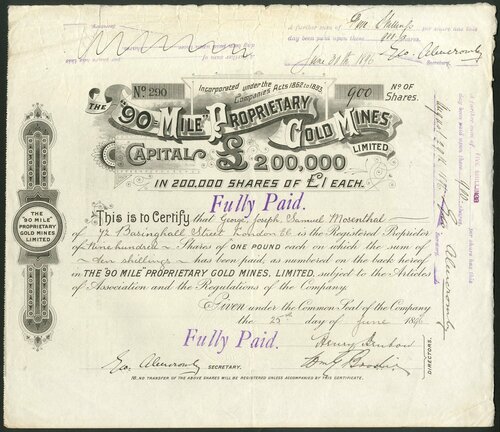 A further sum of
per share has this
day been paid upon these
Shares.
June 28th 1896
Geo. Abercromby
Secretary.
No 290
Incorporated under the
Companies Acts 1862 to 1893.
900
No OF
Shares.
THE "90-MILE" PROPRIETARY
GOLD MINES
LIMITED.
CAPITAL £200,000
IN 200,000 SHARES OF £1 EACH.
Fully Paid.
This is to Certify that George Joseph Samuel Mosenthal
of 72 Basinghall Street London EC is the Registered Proprietor
of Nine hundred Shares of ONE POUND each on which the sum of
ten shillings has been paid, as numbered on the back hereof
in THE "90 MILE" PROPRIETARY GOLD MINES, LIMITED, subject to the Articles
of Association and the Regulations of the Company.
Given under the Common Seal of the Company
the 25th day of June 1896
Fully Paid.
Geo. Abercromby SECRETARY.
DIRECTORS.
NO TRANSFER OF THE ABOVE SHARES WILL BE REGISTERED UNLESS ACCOMPANIED BY THIS CERTIFICATE.
THE
"90 MILE"
PROPRIETARY
GOLD MINES
LIMITED